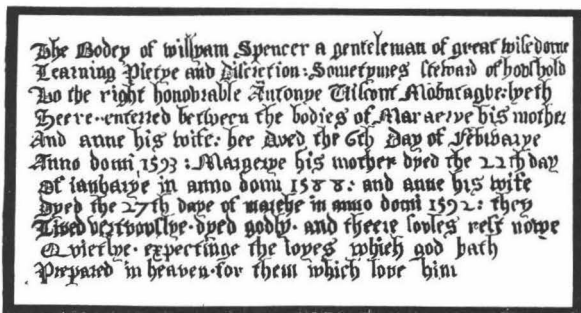 The Bodey of willyam Spencer a genteleman of great wisedome
Learning Pietye and discretion: Sometymes steward of houshold
To the right honorable Antonye Viscont Mountague: lyeth
Heere enterred betwen the bodies of Margerye his mother
And anne his wife: hee dyed the 6th Day of Februarye
Anno domi 1593: Margerye his mother dyed the 22th day
Of januarye in anno domi 1588: and anne his wife
Dyed the 27th daye of marche in anno domi 1592: they
Lived vertuouslye · dyed godly · and theere soules rest nowe
Quietlye · expectinge the ioyes which god hath
Prepared in heaven · for them which love him